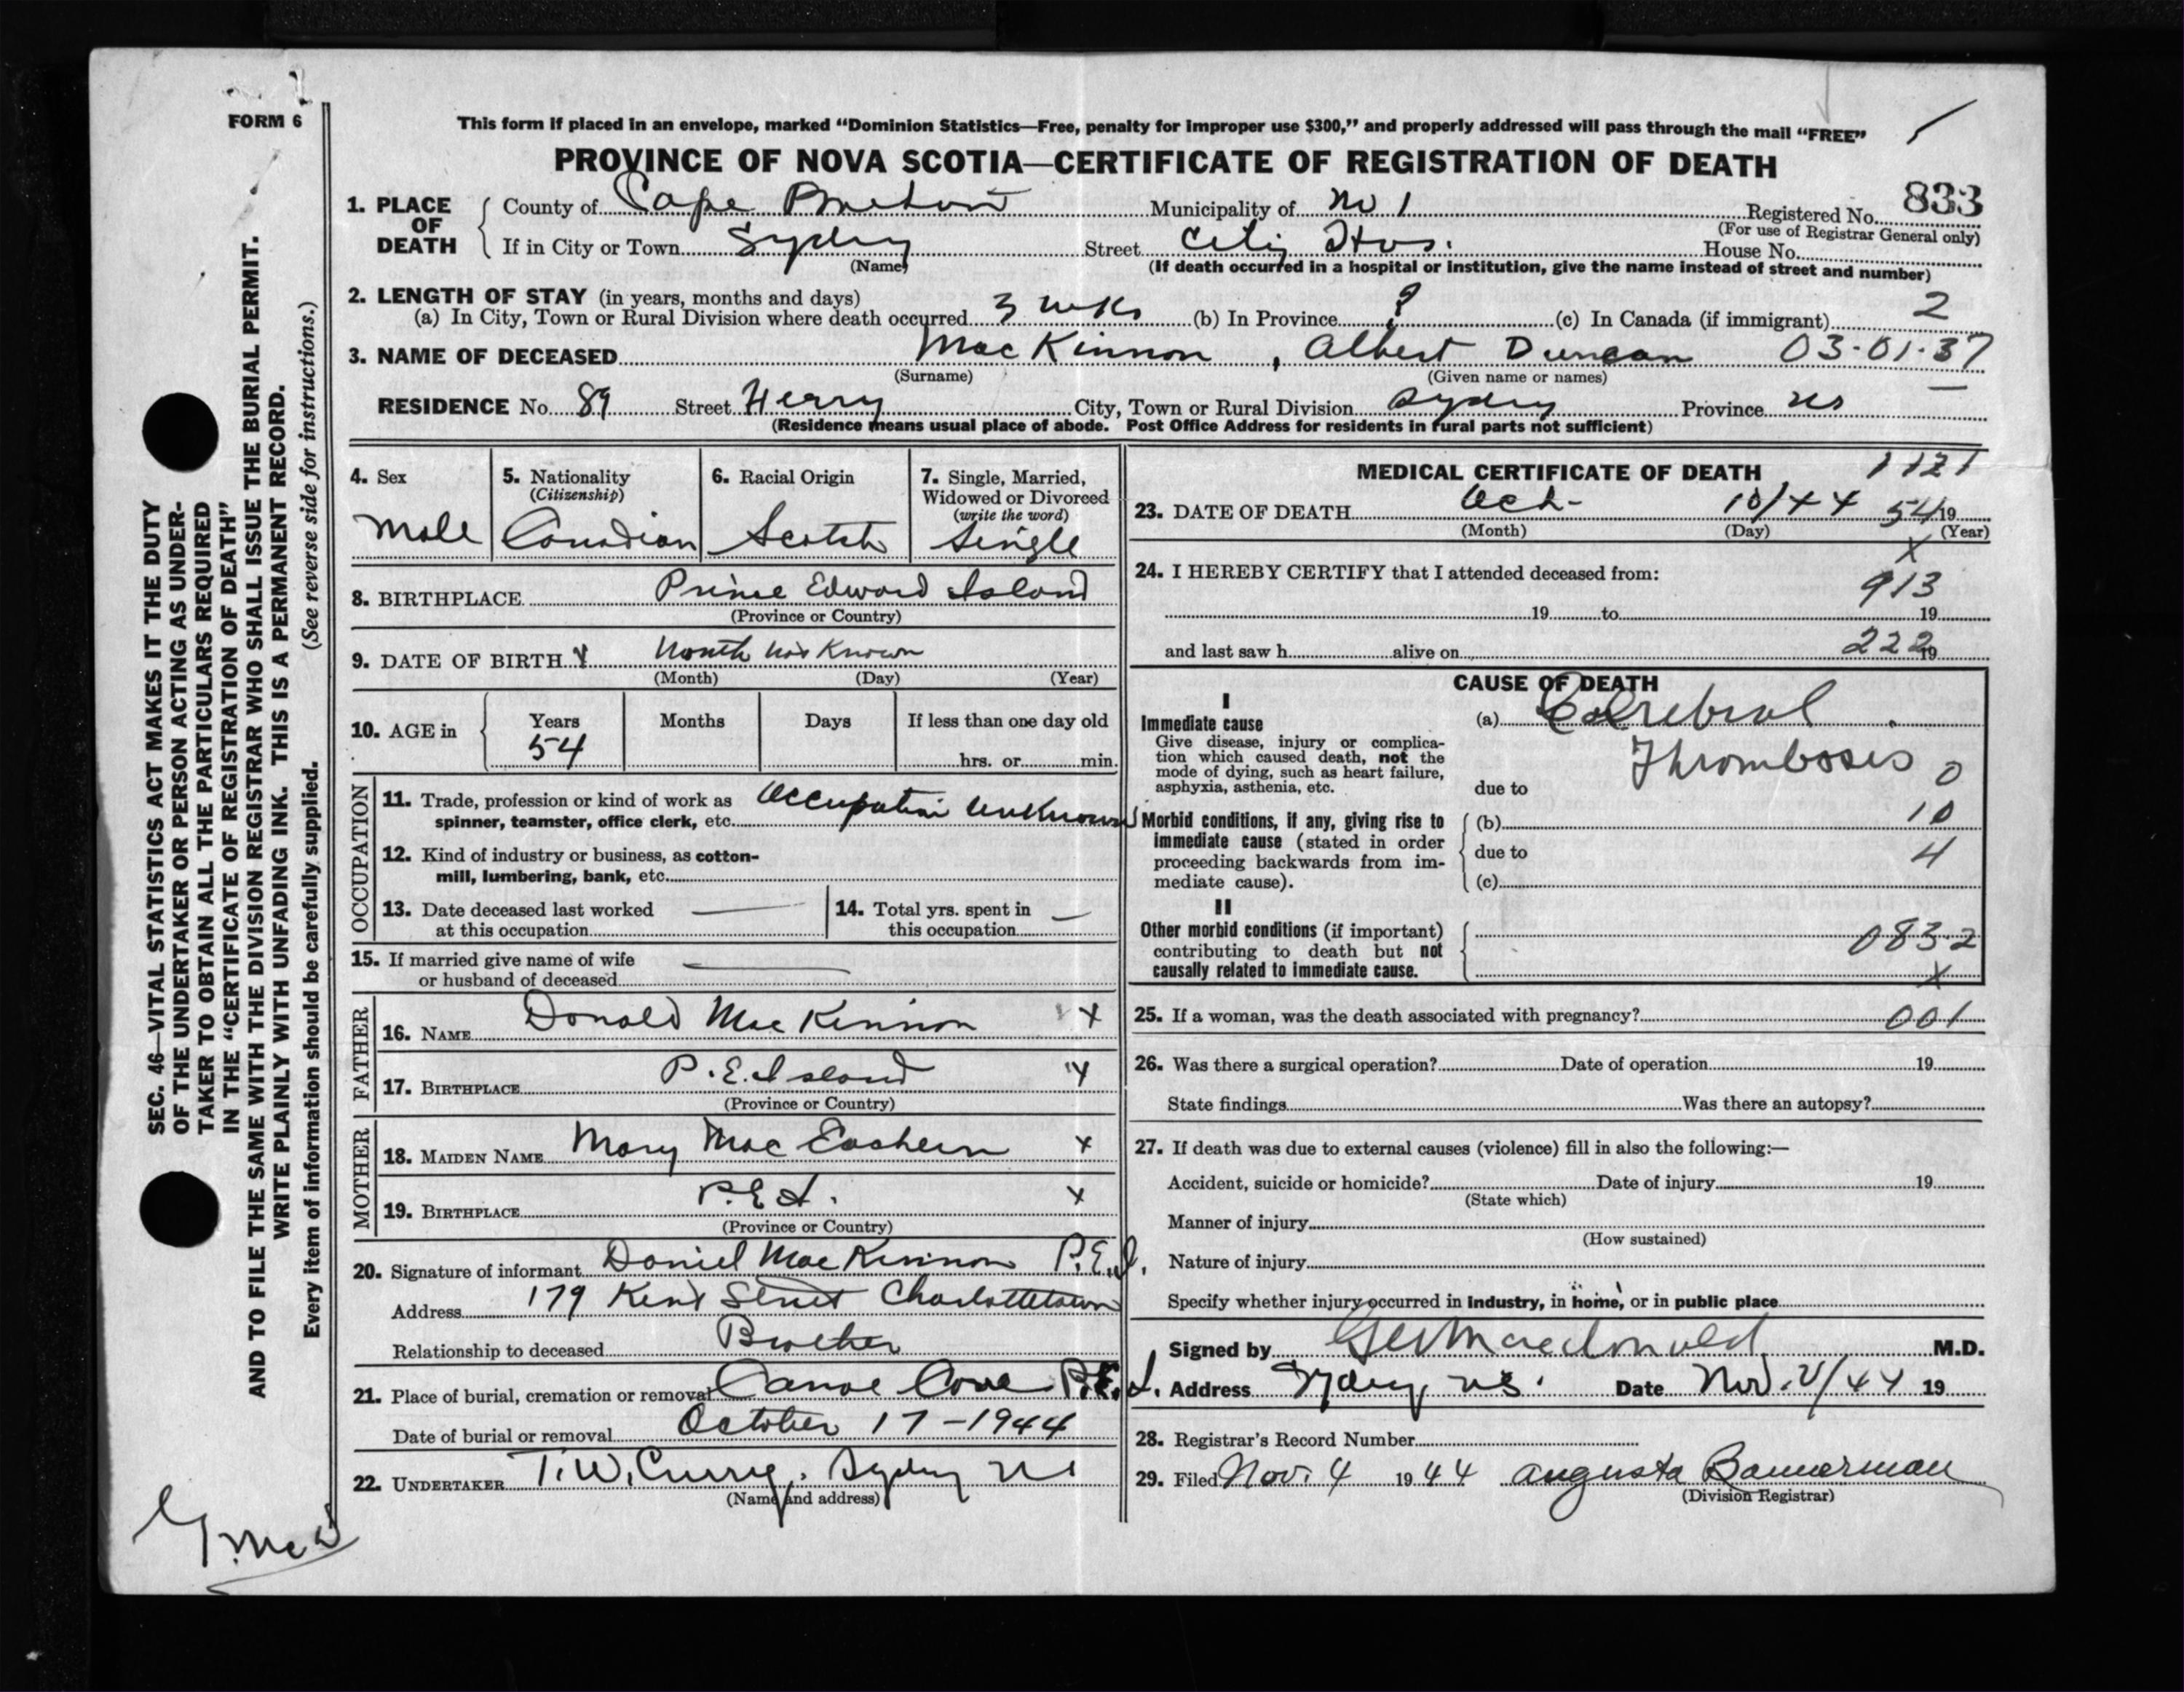 FORM 6
This form if placed in an envelope, marked “Dominion Statistics—Free, penalty for improper use $300,” and properly addressed will pass through the mail “FREE”
PROVINCE OF NOVA SCOTIA—CERTIFICATE OF REGISTRATION OF DEATH
833
1. PLACE OF DEATH County of Cape Breton Municipality of No 1 Registered No.
(For use of Registrar General only)
If in City or Town Sydney Street City Hos. House No.
(Name) (If death occurred in a hospital or institution, give the name instead of street and number)
2. LENGTH OF STAY (in years, months and days)
(a) In City, Town or Rural Division where death occurred 3 wks (b) In Province ? (c) In Canada (if immigrant) 2
3. NAME OF DECEASED MacKinnon, Albert Duncan 03-01-37
(Surname) (Given name or names)
RESIDENCE No. 89 Street City, Town or Rural Division Sydney Province NS
(Residence means usual place of abode. Post Office Address for residents in rural parts not sufficient)
4. Sex
Male
5. Nationality
(Citizenship)
Canadian
6. Racial Origin
Scotch
7. Single, Married,
Widowed or Divorced
(write the word)
Single
8. BIRTHPLACE Prince Edward Island
(Province or Country)
9. DATE OF BIRTH Month Not Known
(Month) (Day) (Year)
10. AGE in Years Months Days If less than one day old
54 hrs. or min.
OCCUPATION
11. Trade, profession or kind of work as
spinner, teamster, office clerk, etc. Occupation Unknown
12. Kind of industry or business, as cotton-
mill, lumbering, bank, etc.
13. Date deceased last worked
at this occupation
14. Total yrs. spent in
this occupation
15. If married give name of wife
or husband of deceased
FATHER
16. NAME Donald MacKinnon X
17. BIRTHPLACE P.E. Island
(Province or Country)
MOTHER
18. MAIDEN NAME Mary MacEachern X
19. BIRTHPLACE P.E.I. X
(Province or Country)
20. Signature of informant Daniel MacKinnon P.E.I.
Address 179 Kent Street Charlottetown
Relationship to deceased Brother
21. Place of burial, cremation or removal Canoe Cove P.E.I.
Date of burial or removal October 17-1944
22. UNDERTAKER T.W. Curry, Sydney NS
(Name and address)
MEDICAL CERTIFICATE OF DEATH 1121
23. DATE OF DEATH Oct- 10/44 54 19
(Month) (Day) (Year)
X
24. I HEREBY CERTIFY that I attended deceased from:
913
19 to 19
and last saw h alive on 222 19
CAUSE OF DEATH
I
Immediate cause
Give disease, injury or complica-
tion which caused death, not the
mode of dying, such as heart failure,
asphyxia, asthenia, etc.
(a) Cerebral
Thrombosis 0
due to
Morbid conditions, if any, giving rise to
immediate cause (stated in order
proceeding backwards from im-
mediate cause).
(b) 10
due to 4
(c)
II
Other morbid conditions (if important)
contributing to death but not
causally related to immediate cause.
083-2
X
25. If a woman, was the death associated with pregnancy? 001
26. Was there a surgical operation? Date of operation 19
State findings Was there an autopsy?
27. If death was due to external causes (violence) fill in also the following:—
Accident, suicide or homicide? Date of injury 19
(State which)
Manner of injury
(How sustained)
Nature of injury
Specify whether injury occurred in industry, in home, or in public place
Signed by Macdonald M.D.
Address Sydney, NS. Date Nov. 4/44 19
28. Registrar's Record Number
29. Filed Nov. 4 1944 Augusta Bannerman
(Division Registrar)
SEC. 46—VITAL STATISTICS ACT MAKES IT THE DUTY
OF THE UNDERTAKER OR PERSON ACTING AS UNDER-
TAKER TO OBTAIN ALL THE PARTICULARS REQUIRED
IN THE “CERTIFICATE OF REGISTRATION OF DEATH”
AND TO FILE THE SAME WITH THE DIVISION REGISTRAR WHO SHALL ISSUE THE BURIAL PERMIT.
WRITE PLAINLY WITH UNFADING INK. THIS IS A PERMANENT RECORD.
Every item of information should be carefully supplied. (See reverse side for instructions.)